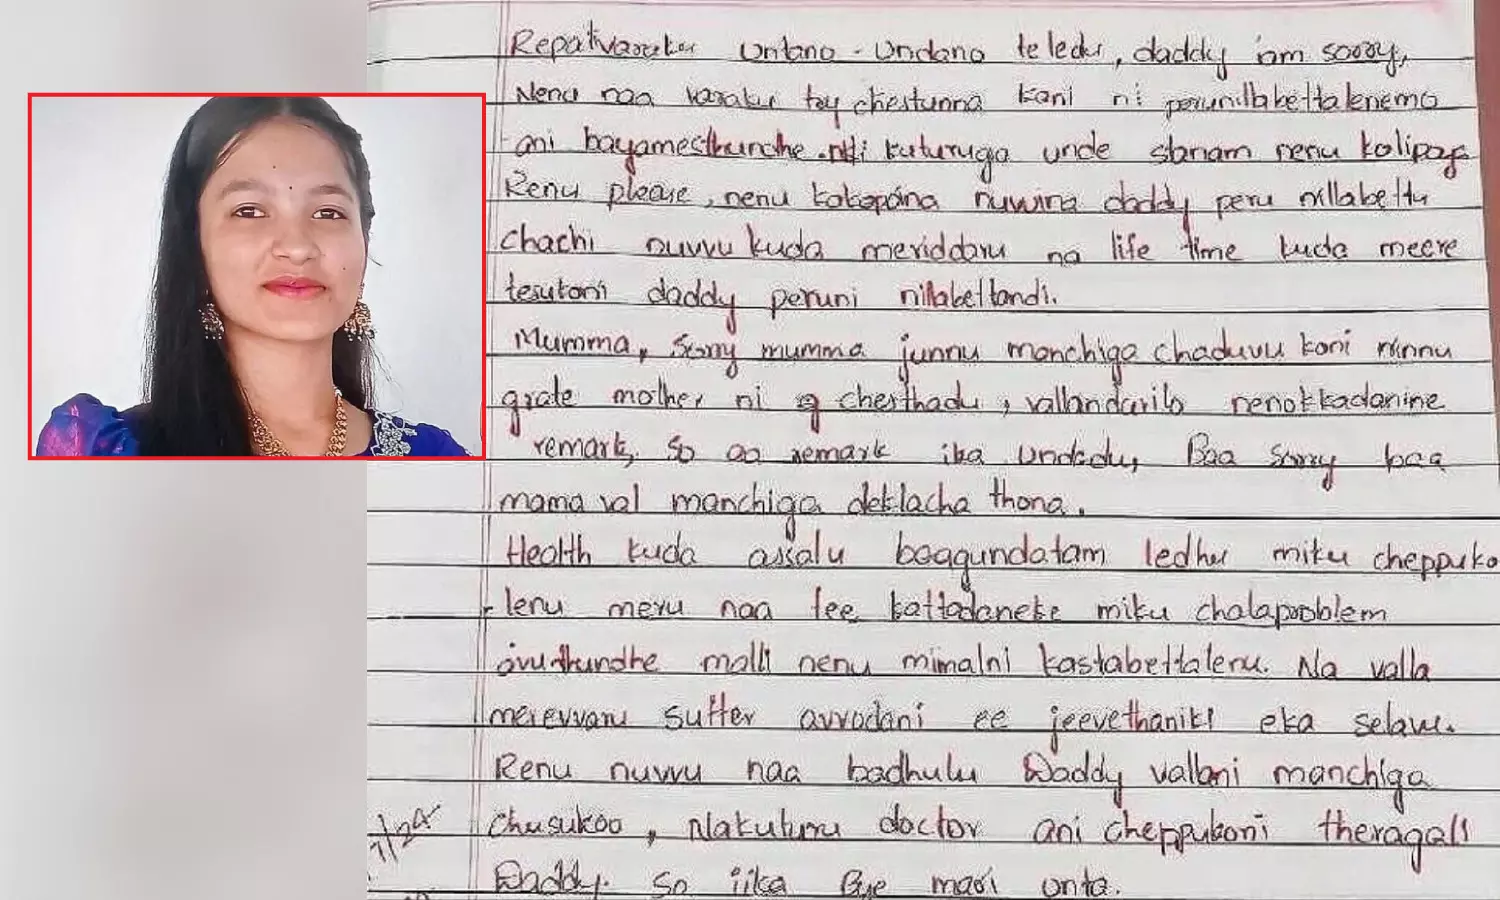 Repativaraku untano - undano teledu, daddy iam sorry,
Nenu naa varaku toy chestunna kani ni perunillabettalenemo
ani bayamesthundhe. nti kuturuga unde stanam nenu kolipoy
Renu please, nenu kakapoina nuvvina daddy peru nillabettu
chachi nuvvu kuda meriddaru na life time kuda meere
tesukoni daddy peruni nillabettandi.
Mumma, sorry mumma junnu manchiga chaduvu koni ninnu
grate mother ni chesthadu, vallandarilo nenokkadanine
remark, so aa remark ika undadu, Baa sorry baa
mama val manchiga deklacha thona.
Health kuda assalu baagundatam ledhu miku cheppuko
lenu meru naa fee kattadaneke miku chalaproblem
avuthundhe malli nenu mimalni kastabettalenu. Na valla
merevvaru suffer avvadani ee jeevethaniki eka selavu.
Renu nuvvu naa badhulu Daddy vallani manchiga
chusukoo, Nakuturu doctor ani cheppukoni theragali
Daddy. So iika Bye mari unta.